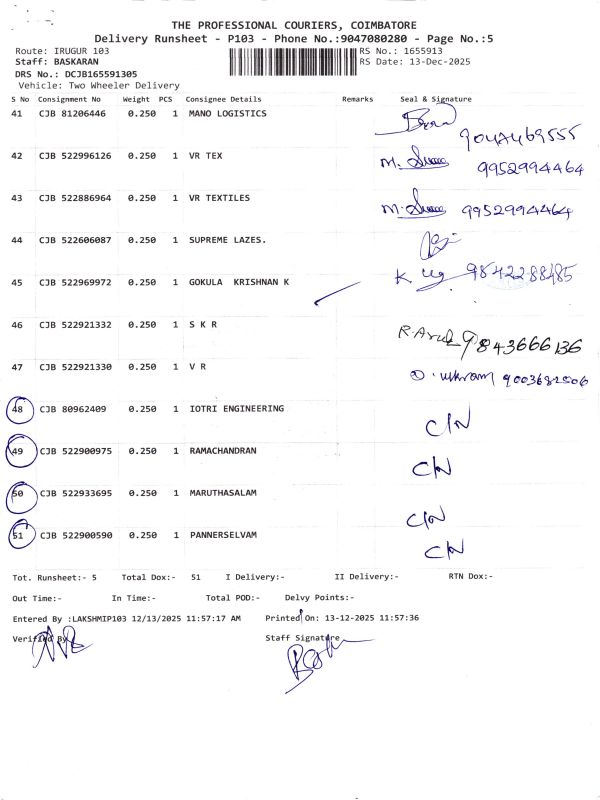 THE PROFESSIONAL COURIERS, COIMBATORE
Delivery Runsheet - P103 - Phone No.:9047080280 - Page No.:5
Route: IRUGUR 103 RS No.: 1655913
Staff: BASKARAN RS Date: 13-Dec-2025
DRS No.: DCJB165591305
Vehicle: Two Wheeler Delivery
S No Consignment No Weight PCS Consignee Details Remarks Seal & Signature
41 CJB 81206446 0.250 1 MANO LOGISTICS
9047469555
42 CJB 522996126 0.250 1 VR TEX M. 9952994464
43 CJB 522886964 0.250 1 VR TEXTILES M. 9952994464
44 CJB 522606087 0.250 1 SUPREME LAZES.
45 CJB 522969972 0.250 1 GOKULA KRISHNAN K K 9842288485
46 CJB 522921332 0.250 1 S K R R. 9843666136
47 CJB 522921330 0.250 1 V R 9003682006
48 CJB 80962409 0.250 1 IOTRI ENGINEERING C/N
49 CJB 522900975 0.250 1 RAMACHANDRAN C/N
50 CJB 522933695 0.250 1 MARUTHASALAM C/N
51 CJB 522900590 0.250 1 PANNERSELVAM C/N
Tot. Runsheet:- 5 Total Dox:- 51 I Delivery:- II Delivery:- RTN Dox:-
Out Time:- In Time:- Total POD:- Delvy Points:-
Entered By :LAKSHMIP103 12/13/2025 11:57:17 AM Printed On: 13-12-2025 11:57:36
Verified By Staff Signature